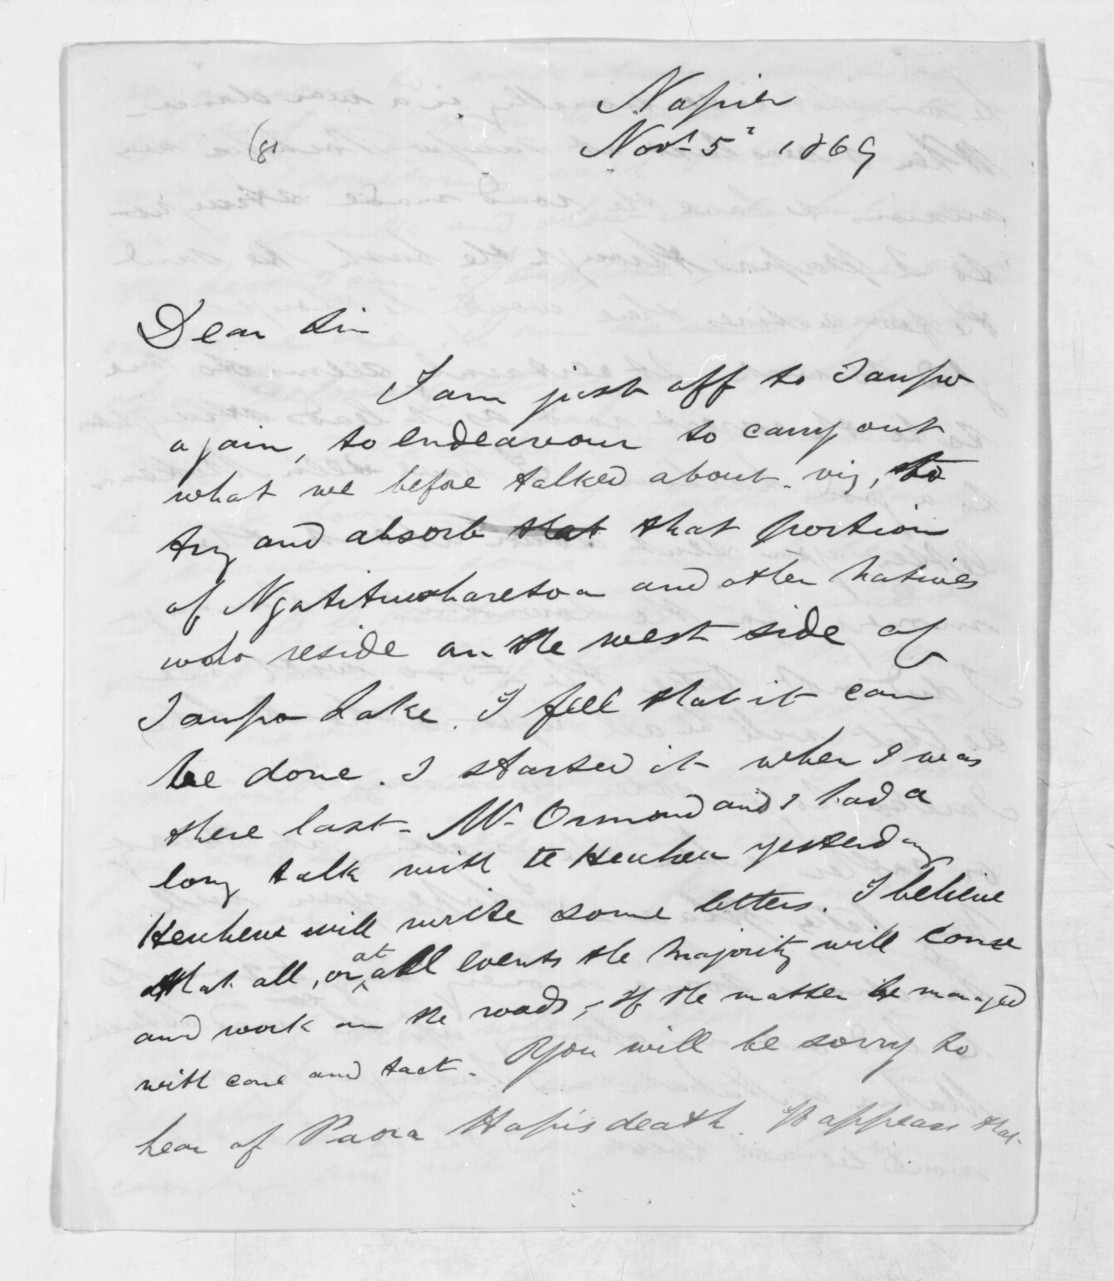 Napier
(81
Novr 5th 1869
Dear Sir
I am just off to Taupo
again, to endeavour to carry out
what we before talked about. viz, to
try and absorb that that portion
of Ngatituwharetoa and other natives
who reside on the west side of
Taupo Lake. I feel that it can
be done. I started it when I was
there last - Mr Ormond and I had a
long talk with Te Heuheu yesterday
Heuheu will write some letters. I believe
that all, or at all events the majority will come
and work on the roads, - If the matter be managed
with care and tact. You will be sorry to
hear of Paora Hapi's death. It appears that